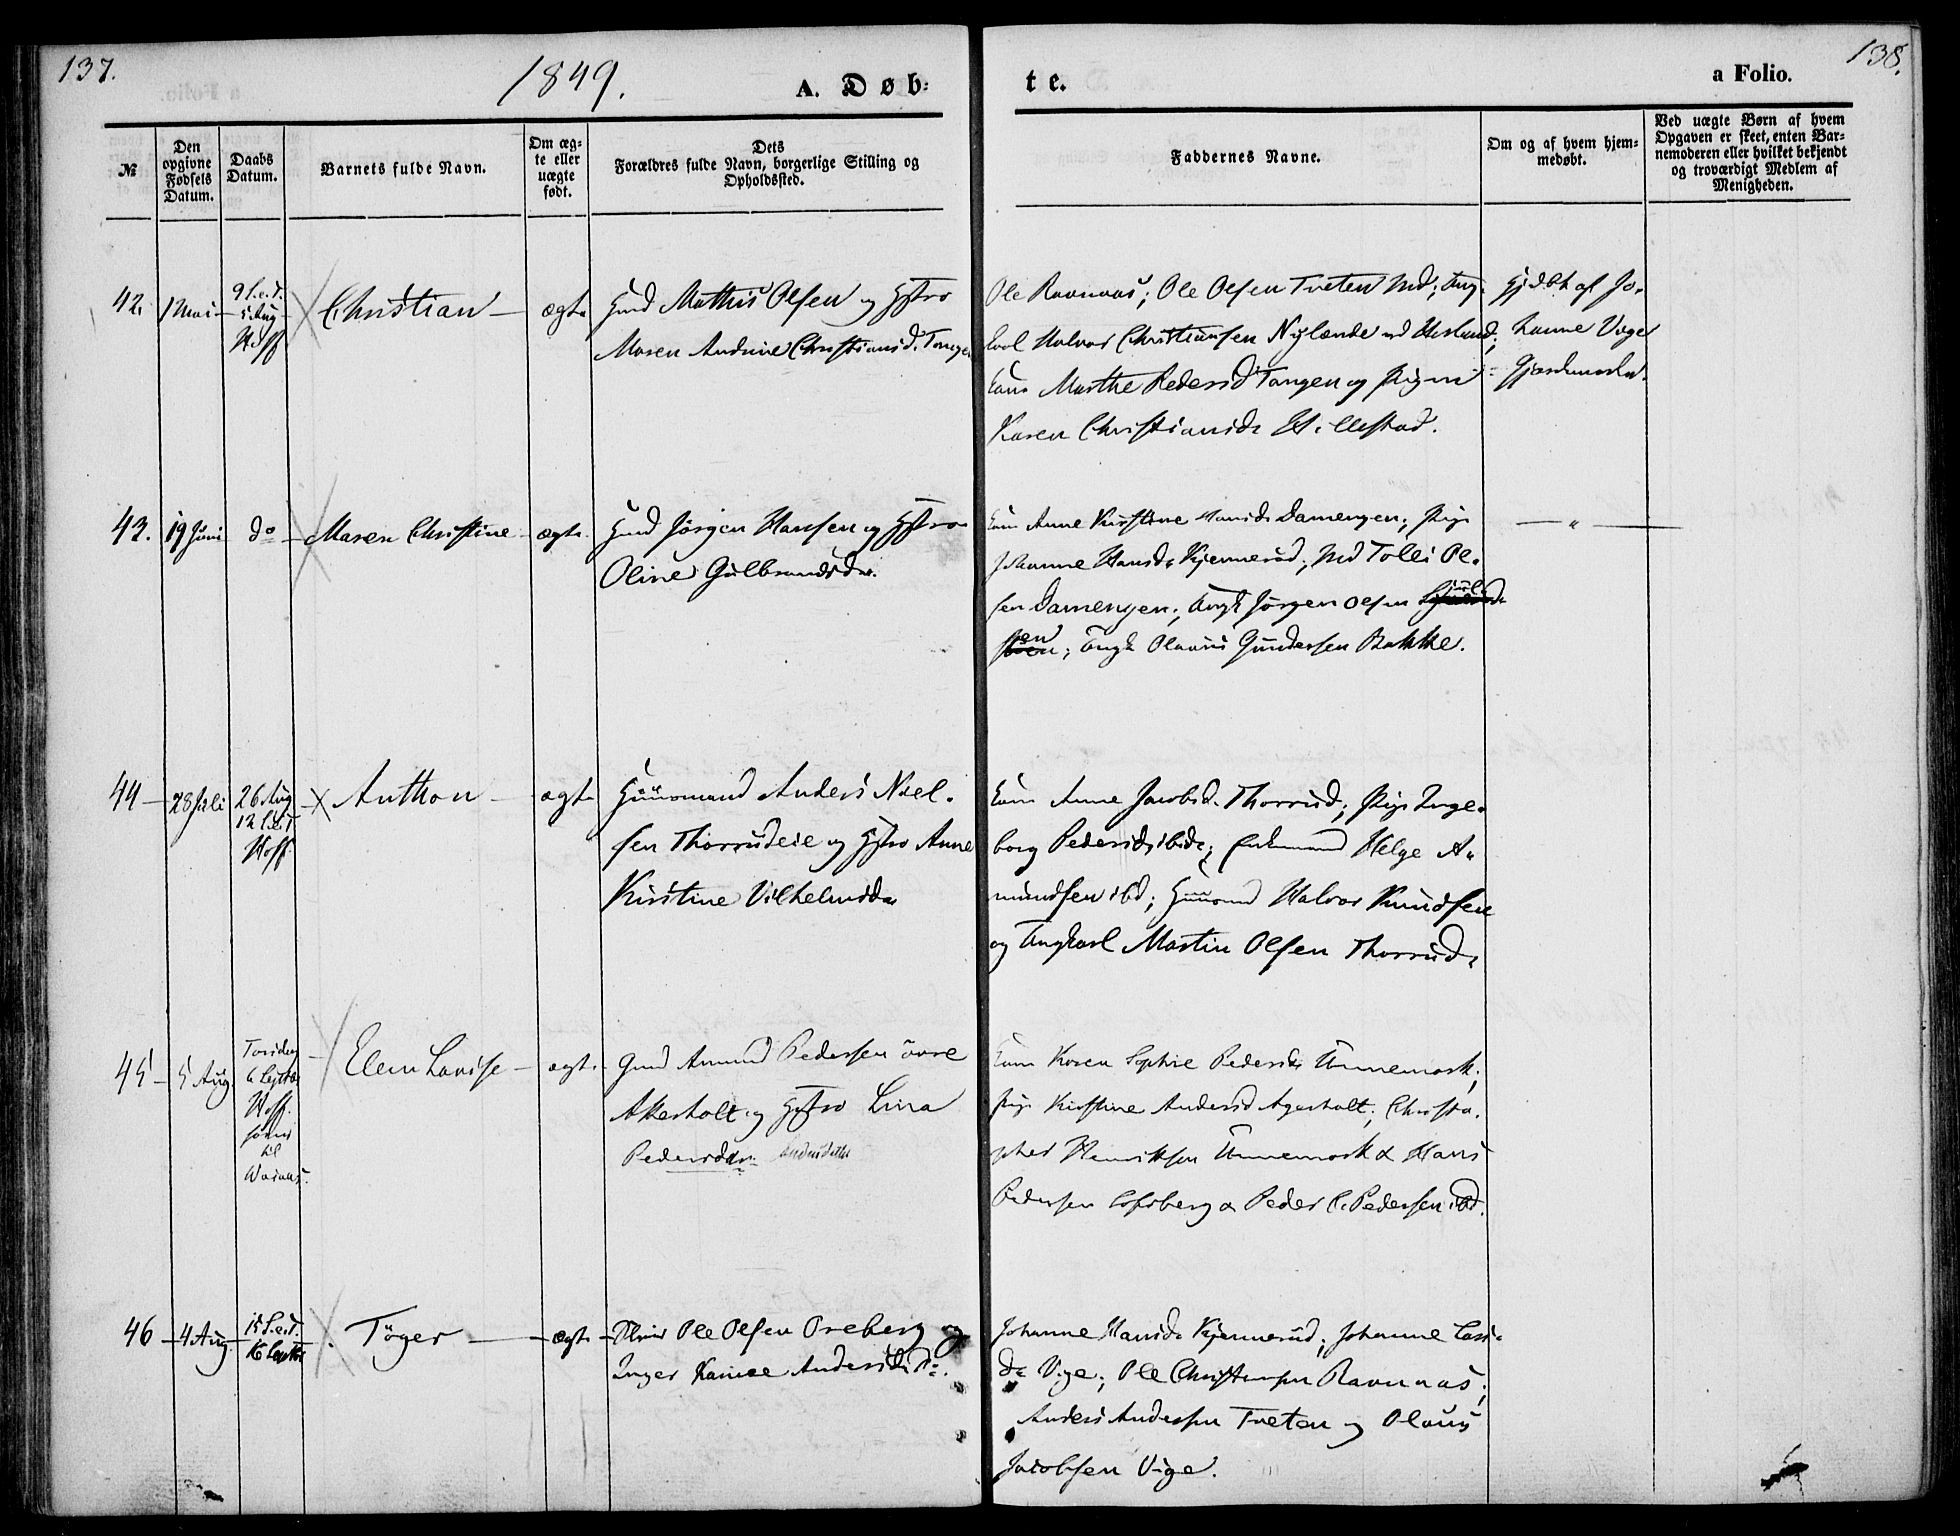 137.
1849.
A. Døb-
te.
a Folio.
138.
№
Den opgivne Fødsels Datum.
Daabs Datum.
Barnets fulde Navn.
Om æg-
te eller
uægte
født.
Dets
Forældres fulde Navn, borgerlige Stilling og
Opholdssted.
Faddernes Navne.
Om og af hvem hjem-
medøbt.
Ved uægte Børn af hvem
Opgaven er skeet, enten Bar-
nemoderen eller hvilket bekjendt
og troværdigt Medlem af
Menigheden.
42.
1 Mai
9 S.e.T.
5 Aug
Hoff
Christian
ægte
Mathis Olsen og Hstro
Maren Andrine Christiansd. Tangen
Ole Ravnaas; Ole Olsen Tveten
Halvor Christiansen Nylænde
Marthe Pedersd Tangen og Pigen
Karen Christiansdr Hillestad.
Hjdbt af Jo-
hanne Vige
Gjordemoder.
43.
19 Juni
do
Maren Christine
ægte
Jørgen Hansen og Hstro
Oline Gulbrandsdr.
Anne Kirstine Hansdr Damengen; Pige
Johanne Hansdr Kjennerud; Tolli Ol-
sen Damengen; Ungk Jørgen Olsen
Ungk Olaus Gundersen Bakke.
44
28 Juli
26 Aug
12 S.e.T
Hoff
Anthon
ægte
Huusmand Anders Niel-
sen Thorrudeie og Hstro Anne
Kirstine Vilhelmsdr
Anne Jacobsd. Thorrud; Pige Inge-
borg Pedersdr ibid; Helge A-
mundsen ibd; Halvor Knudsen
og Ungkarl Martin Olsen Thorrud.
45
5 Aug.
Torsdag
6 Septbr
Hoff.
Elen Lovise
ægte
Gmd Amund Pedersen övre
Akerholt og Hstro Lina
Pedersdr. Andersdatter
Karen Sophie Pedersdr Unnemark;
Pige Kirstine Andersd Agerholt; Christo-
pher Henriksen Unnemark & Hans
Pedersen Lofsberg & Peder C. Pedersen ibd.
46
4 Aug.
15 S.e.T.
16 Septbr
Töger
ægte
Ole Olsen Oreberg og
Inger Karine Andersdr.
Johanne Hansdr Kjennerud; Johanne Lars-
dr Vige; Ole Christensen Ravnaas;
Anders Andersen Tveten og Olaus
Jacobsen Vige.